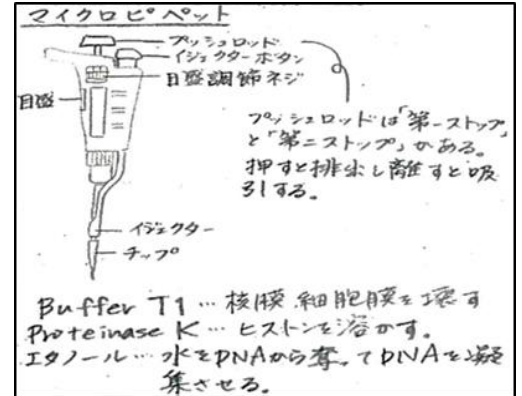 マイクロピペット
プッシュロッド
イジェクターボタン
目盛調節ネジ
目盛
プッシュロッドは「第一ストップ」
と「第二ストップ」がある。
押すと排出し離すと吸
引する。
イジェクター
チップ
Buffer T1 … 核膜 細胞膜を壊す
Proteinase K … ヒストンを溶かす。
エタノール … 水をDNAから奪ってDNAを凝
集させる。